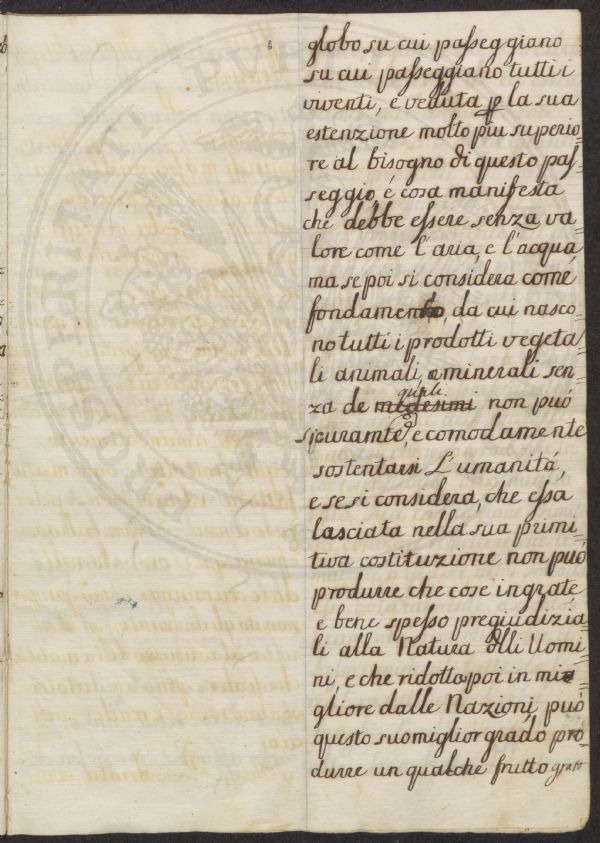 globo su cui passeggiano
su cui passeggiano tutti i
viventi, e veduta p la sua
estenzione molto piu superio=
re al bisogno di questo pas=
seggio, é cosa manifesta
che debbe essere senza va=
lore come l'aria, e l'acqua,
ma se poi si considera come
fondamento, da cui nasco=
no tutti i prodotti vegeta=
li animali, e minerali sen=
quali
za de medesimi non puó
sicuramte, e comodamente
sostentarsi L'umanitá,
e se si considera, che essa
lasciata nella sua primi=
tiva costituzione non puó
produrre che cose ingrate
e bene spesso pregiudizia=
li alla Natura dlli Uomi=
ni, e che ridotta poi in mi=
gliore dalle Nazioni, puó
questo suo miglior grado pro=
durre un qualche frutto grato
PROSPERITATI PUBLI